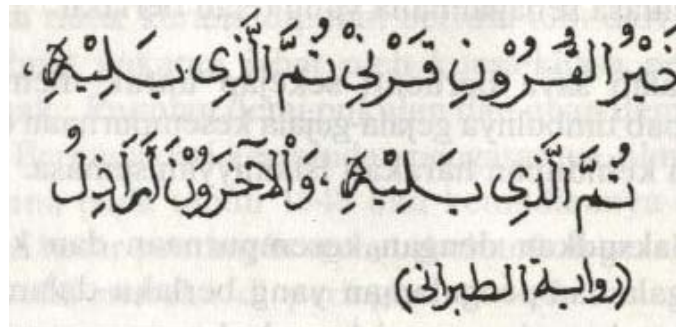 خَيْرُ الْقُرُوْنِ قَرْنِيْ ثُمَّ الَّذِى يَلِيْهِ
ثُمَّ الَّذِى يَلِيْهِ وَالْآخَرُوْنَ أَرَاذِلُ
(رواية الطبراني)